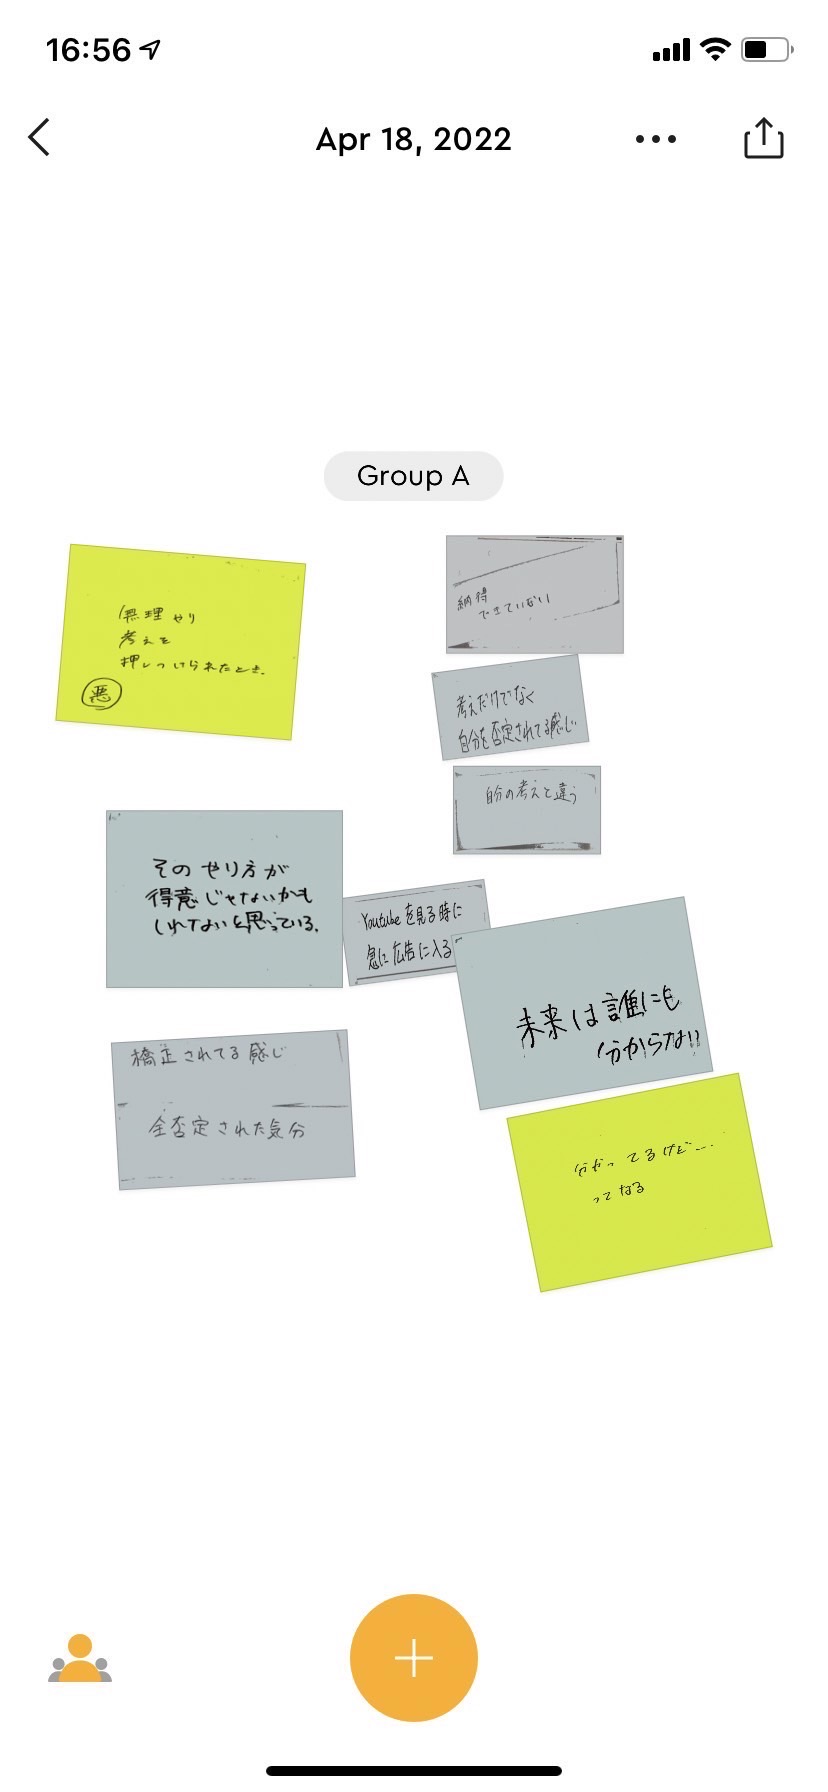 16:56
Apr 18, 2022
Group A
無理やり
考えを
押しつけられたとき.
悪
納得
できていない
考えだけでなく
自分を否定されてる感じ
自分の考えと違う
そのやり方が
得意じゃないかも
しれないと思っている.
Youtubeを見る時に
急に広告に入る
未来は誰にも
分からない
橋正されてる感じ
全否定された気分
分かってるけど....
ってなる